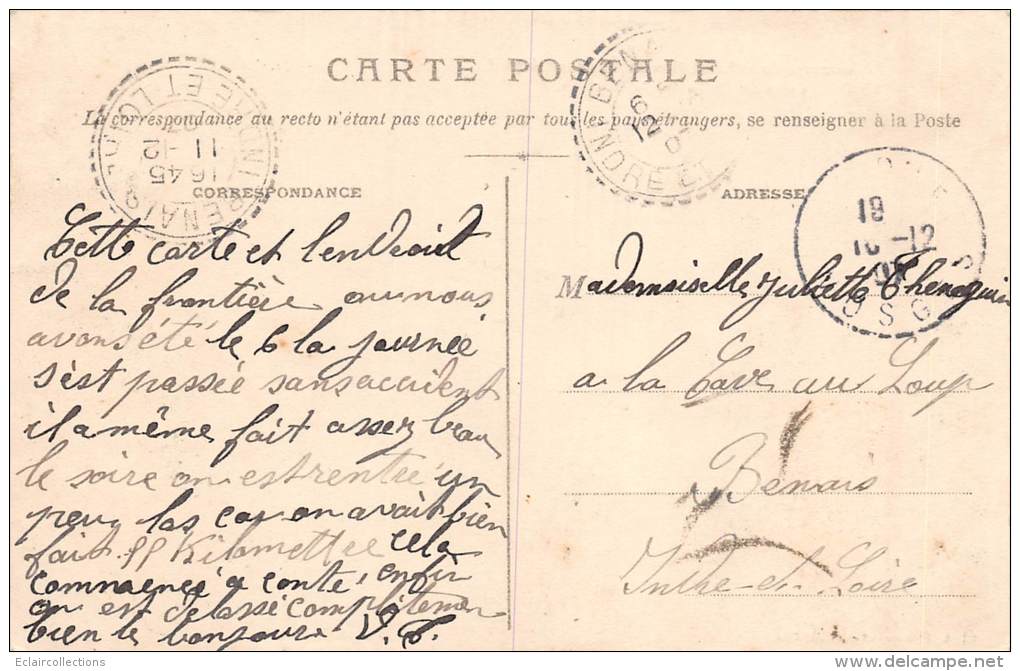 CARTE POSTALE
La correspondance au recto n'étant pas acceptée par tous les pays étrangers, se renseigner à la Poste
CORRESPONDANCE
ADRESSE
16 45
11 -12
INDRE E
6
12
19
10 -12
Cette carte et lendroit
de la frontière ou nous
avons été le 6 la journée
s'est passée sans accident
il a même fait assez beau
le soire on est rentré un
peu las car on avait bien
fait 99 Kilomettre cela
commence a conté, enfin
on est délassé complitemen
bien le bonjour V. T.
Mademoiselle Juliette Thenaguin
a la Cave au Loup
Benais
Indre-et-Loire
Eclaircollections
delcampe.net